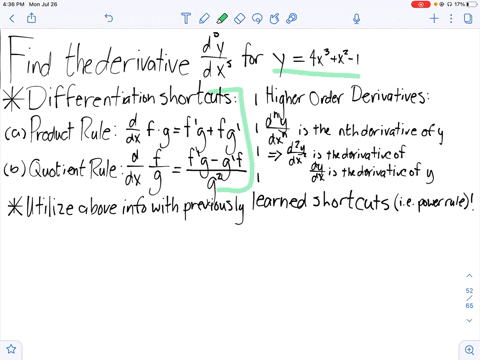 4:36 PM Mon Jul 26
17%
Find the derivative d⁵y/dx⁵ for y = 4x³+x²-1
* Differentiation shortcuts:
(a) Product Rule: d/dx f·g = f'g + fg'
(b) Quotient Rule: d/dx f/g = (f'g - g'f)/g²
Higher Order Derivatives:
dⁿy/dxⁿ is the nth derivative of y
⇒ d²y/dx² is the derivative of
dy/dx is the derivative of y
* Utilize above info with previously learned shortcuts (i.e. power rule)!
52
/
65